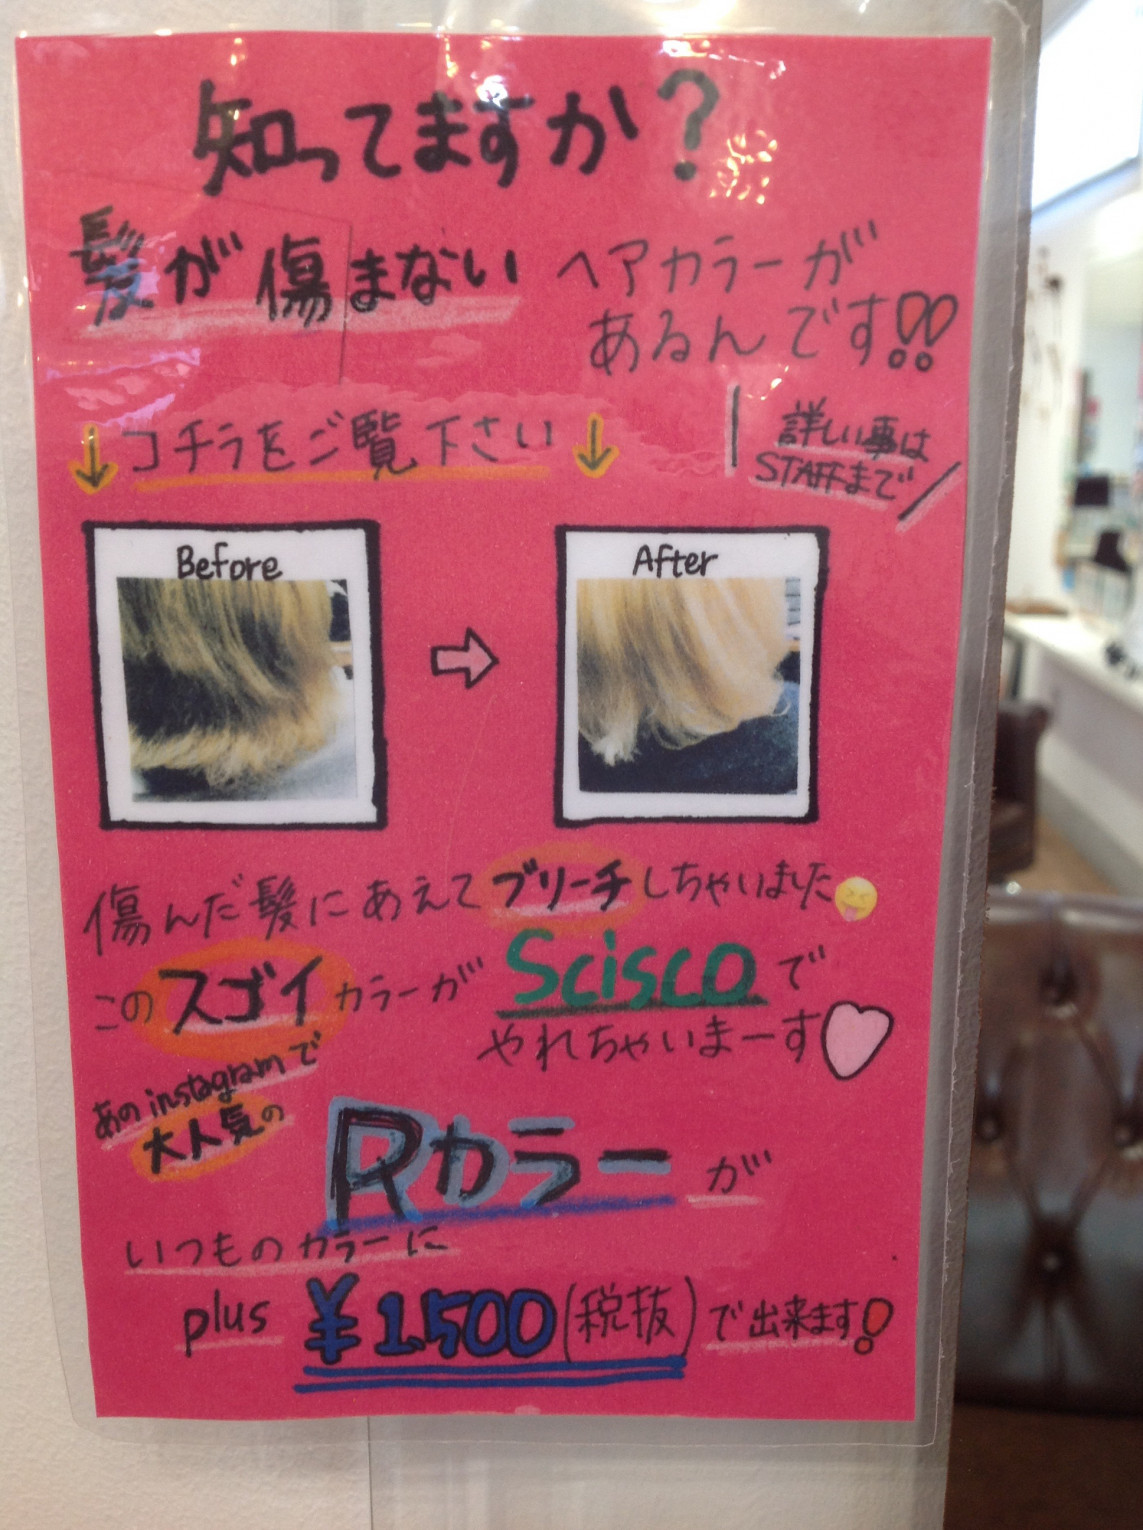 知ってますか?
髪が傷まない ヘアカラーが
あるんです!!
↓コチラをご覧下さい↓
詳しい事は
STAFFまで
Before
After
傷んだ髪にあえてブリーチしちゃいました
このスゴイカラーが Sciscoで
やれちゃいまーす
あのinstagramで
大人気の
Rカラーが
いつものカラーに
plus ¥1,500(税抜)で出来ます!